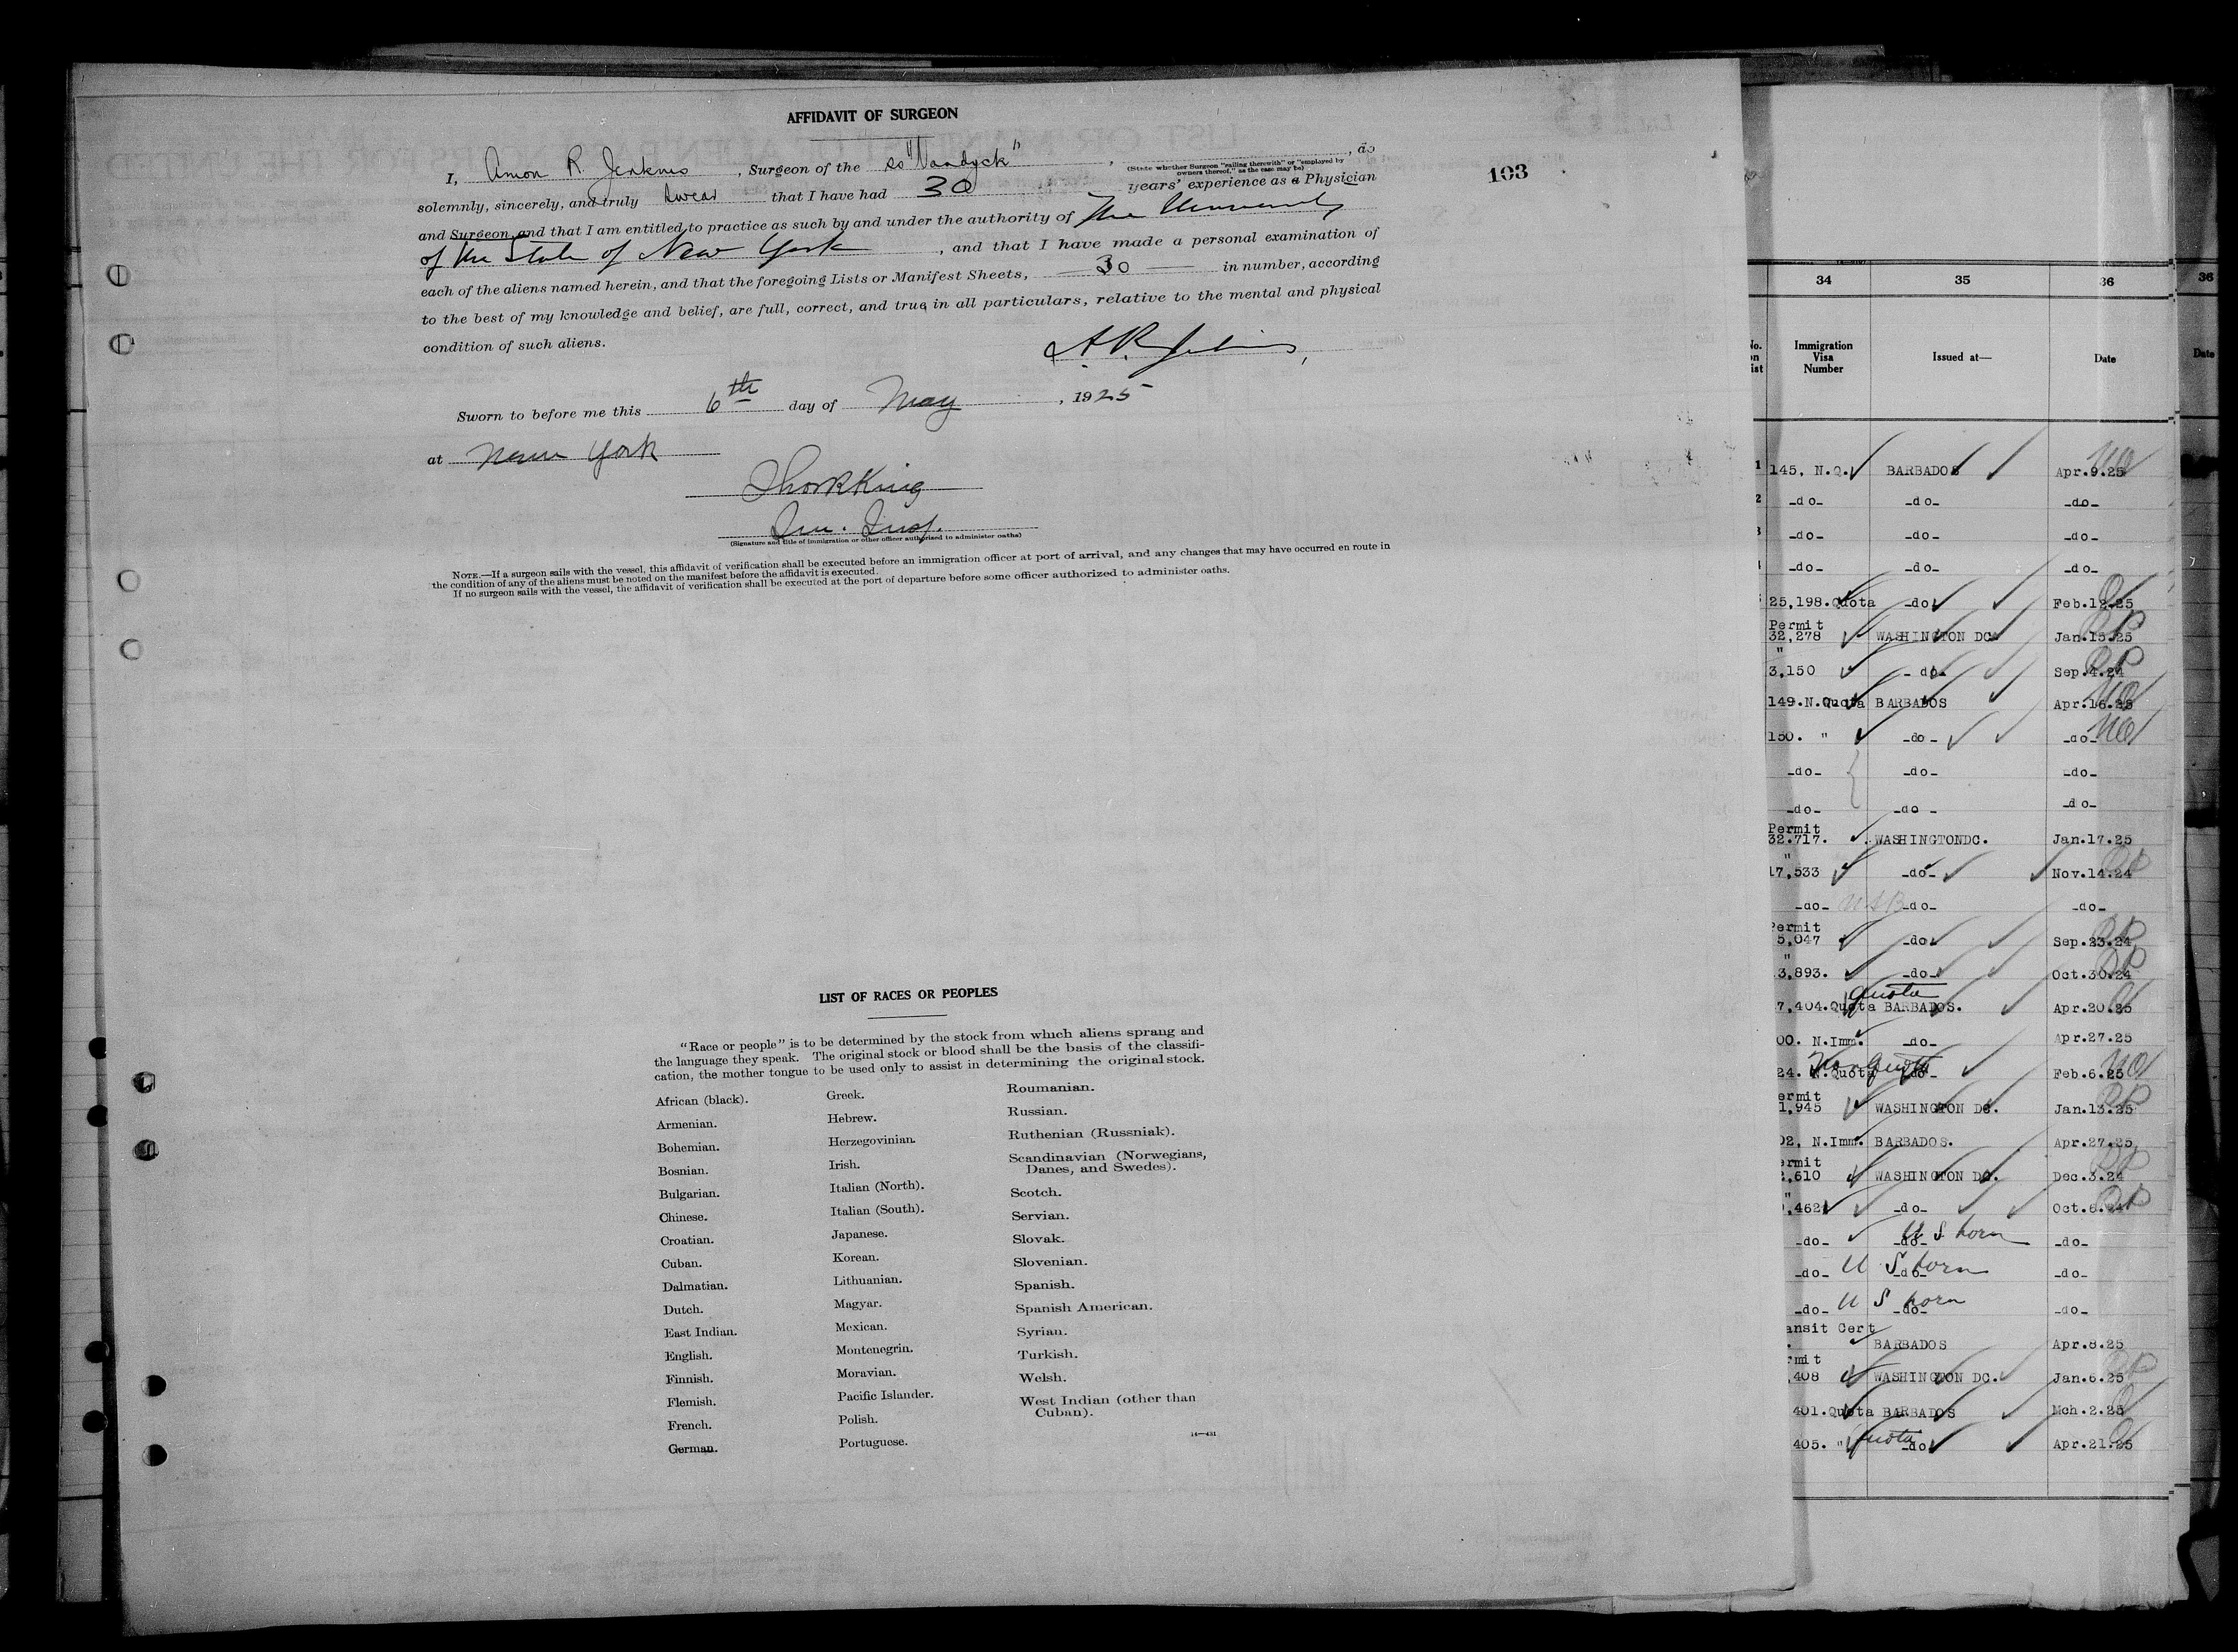 AFFIDAVIT OF SURGEON
103
I, Amon R. Jenkins, Surgeon of the ss "Vandyck", do
(State whether Surgeon "sailing therewith" or "employed by
owners thereof," as the case may be)
solemnly, sincerely, and truly swear that I have had 30 years' experience as a Physician
and Surgeon, and that I am entitled to practice as such by and under the authority of The University
of the State of New York, and that I have made a personal examination of
each of the aliens named herein, and that the foregoing Lists or Manifest Sheets, 30 in number, according
to the best of my knowledge and belief, are full, correct, and true in all particulars, relative to the mental and physical
condition of such aliens.
Sworn to before me this 6th day of May, 1925
at New York
Imm. Insp.
(Signature and title of immigration or other officer authorized to administer oaths)
NOTE.—If a surgeon sails with the vessel, this affidavit of verification shall be executed before an immigration officer at port of arrival, and any changes that may have occurred en route in
the condition of any of the aliens must be noted on the manifest before the affidavit is executed.
If no surgeon sails with the vessel, the affidavit of verification shall be executed at the port of departure before some officer authorized to administer oaths.
LIST OF RACES OR PEOPLES
"Race or people" is to be determined by the stock from which aliens sprang and
the language they speak. The original stock or blood shall be the basis of the classifi-
cation, the mother tongue to be used only to assist in determining the original stock.
African (black).
Armenian.
Bohemian.
Bosnian.
Bulgarian.
Chinese.
Croatian.
Cuban.
Dalmatian.
Dutch.
East Indian.
English.
Finnish.
Flemish.
French.
German.
Greek.
Hebrew.
Herzegovinian.
Irish.
Italian (North).
Italian (South).
Japanese.
Korean.
Lithuanian.
Magyar.
Mexican.
Montenegrin.
Moravian.
Pacific Islander.
Polish.
Portuguese.
Roumanian.
Russian.
Ruthenian (Russniak).
Scandinavian (Norwegians,
Danes, and Swedes).
Scotch.
Servian.
Slovak.
Slovenian.
Spanish.
Spanish American.
Syrian.
Turkish.
Welsh.
West Indian (other than
Cuban).
14—431
34 35 36 36
Immigration
Visa
Number
Issued at—
Date
Date
145, N.Q. BARBADOS Apr.9.25 NQ
-do- -do- -do-
-do- -do- -do-
-do- -do- -do-
25,198.Quota -do- Feb.12.25 Q
Permit
32,278 WASHINGTON DC. Jan.15.25 RP
"
3,150 -do- Sep.4.24 RP
149.N.Quota BARBADOS Apr.16.25 NQ
150. " -do- -do- NQ
-do- -do- -do-
-do- -do- -do-
Permit
32.717. WASHINGTONDC. Jan.17.25
"
17,533 -do- Nov.14.24 RP
-do- USB -do- -do-
Permit
5,047 -do- Sep.23.24 RP
"
3,893. -do- Oct.30.24 RP
quota
7,404.Quota BARBADOS. Apr.20.25 Q
00. N.Imm. -do- Apr.27.25
Non quota
24. N.Quota -do- Feb.6.25 NQ
ermit
1,945 WASHINGTON DC. Jan.13.25 RP
02, N.Imm. BARBADOS. Apr.27.25
ermit
2,610 WASHINGTON DC. Dec.3.24 RP
"
,462 -do- Oct.8.24 RP
-do- -do- U S born -do-
-do- U S born -do- -do-
-do- U S born -do- -do-
ansit Cert
BARBADOS Apr.8.25
rmit
,408 WASHINGTON DC. Jan.6.25 RP
401.Quota BARBADOS Mch.2.25 Q
405. " quota -do- Apr.21.25 Q